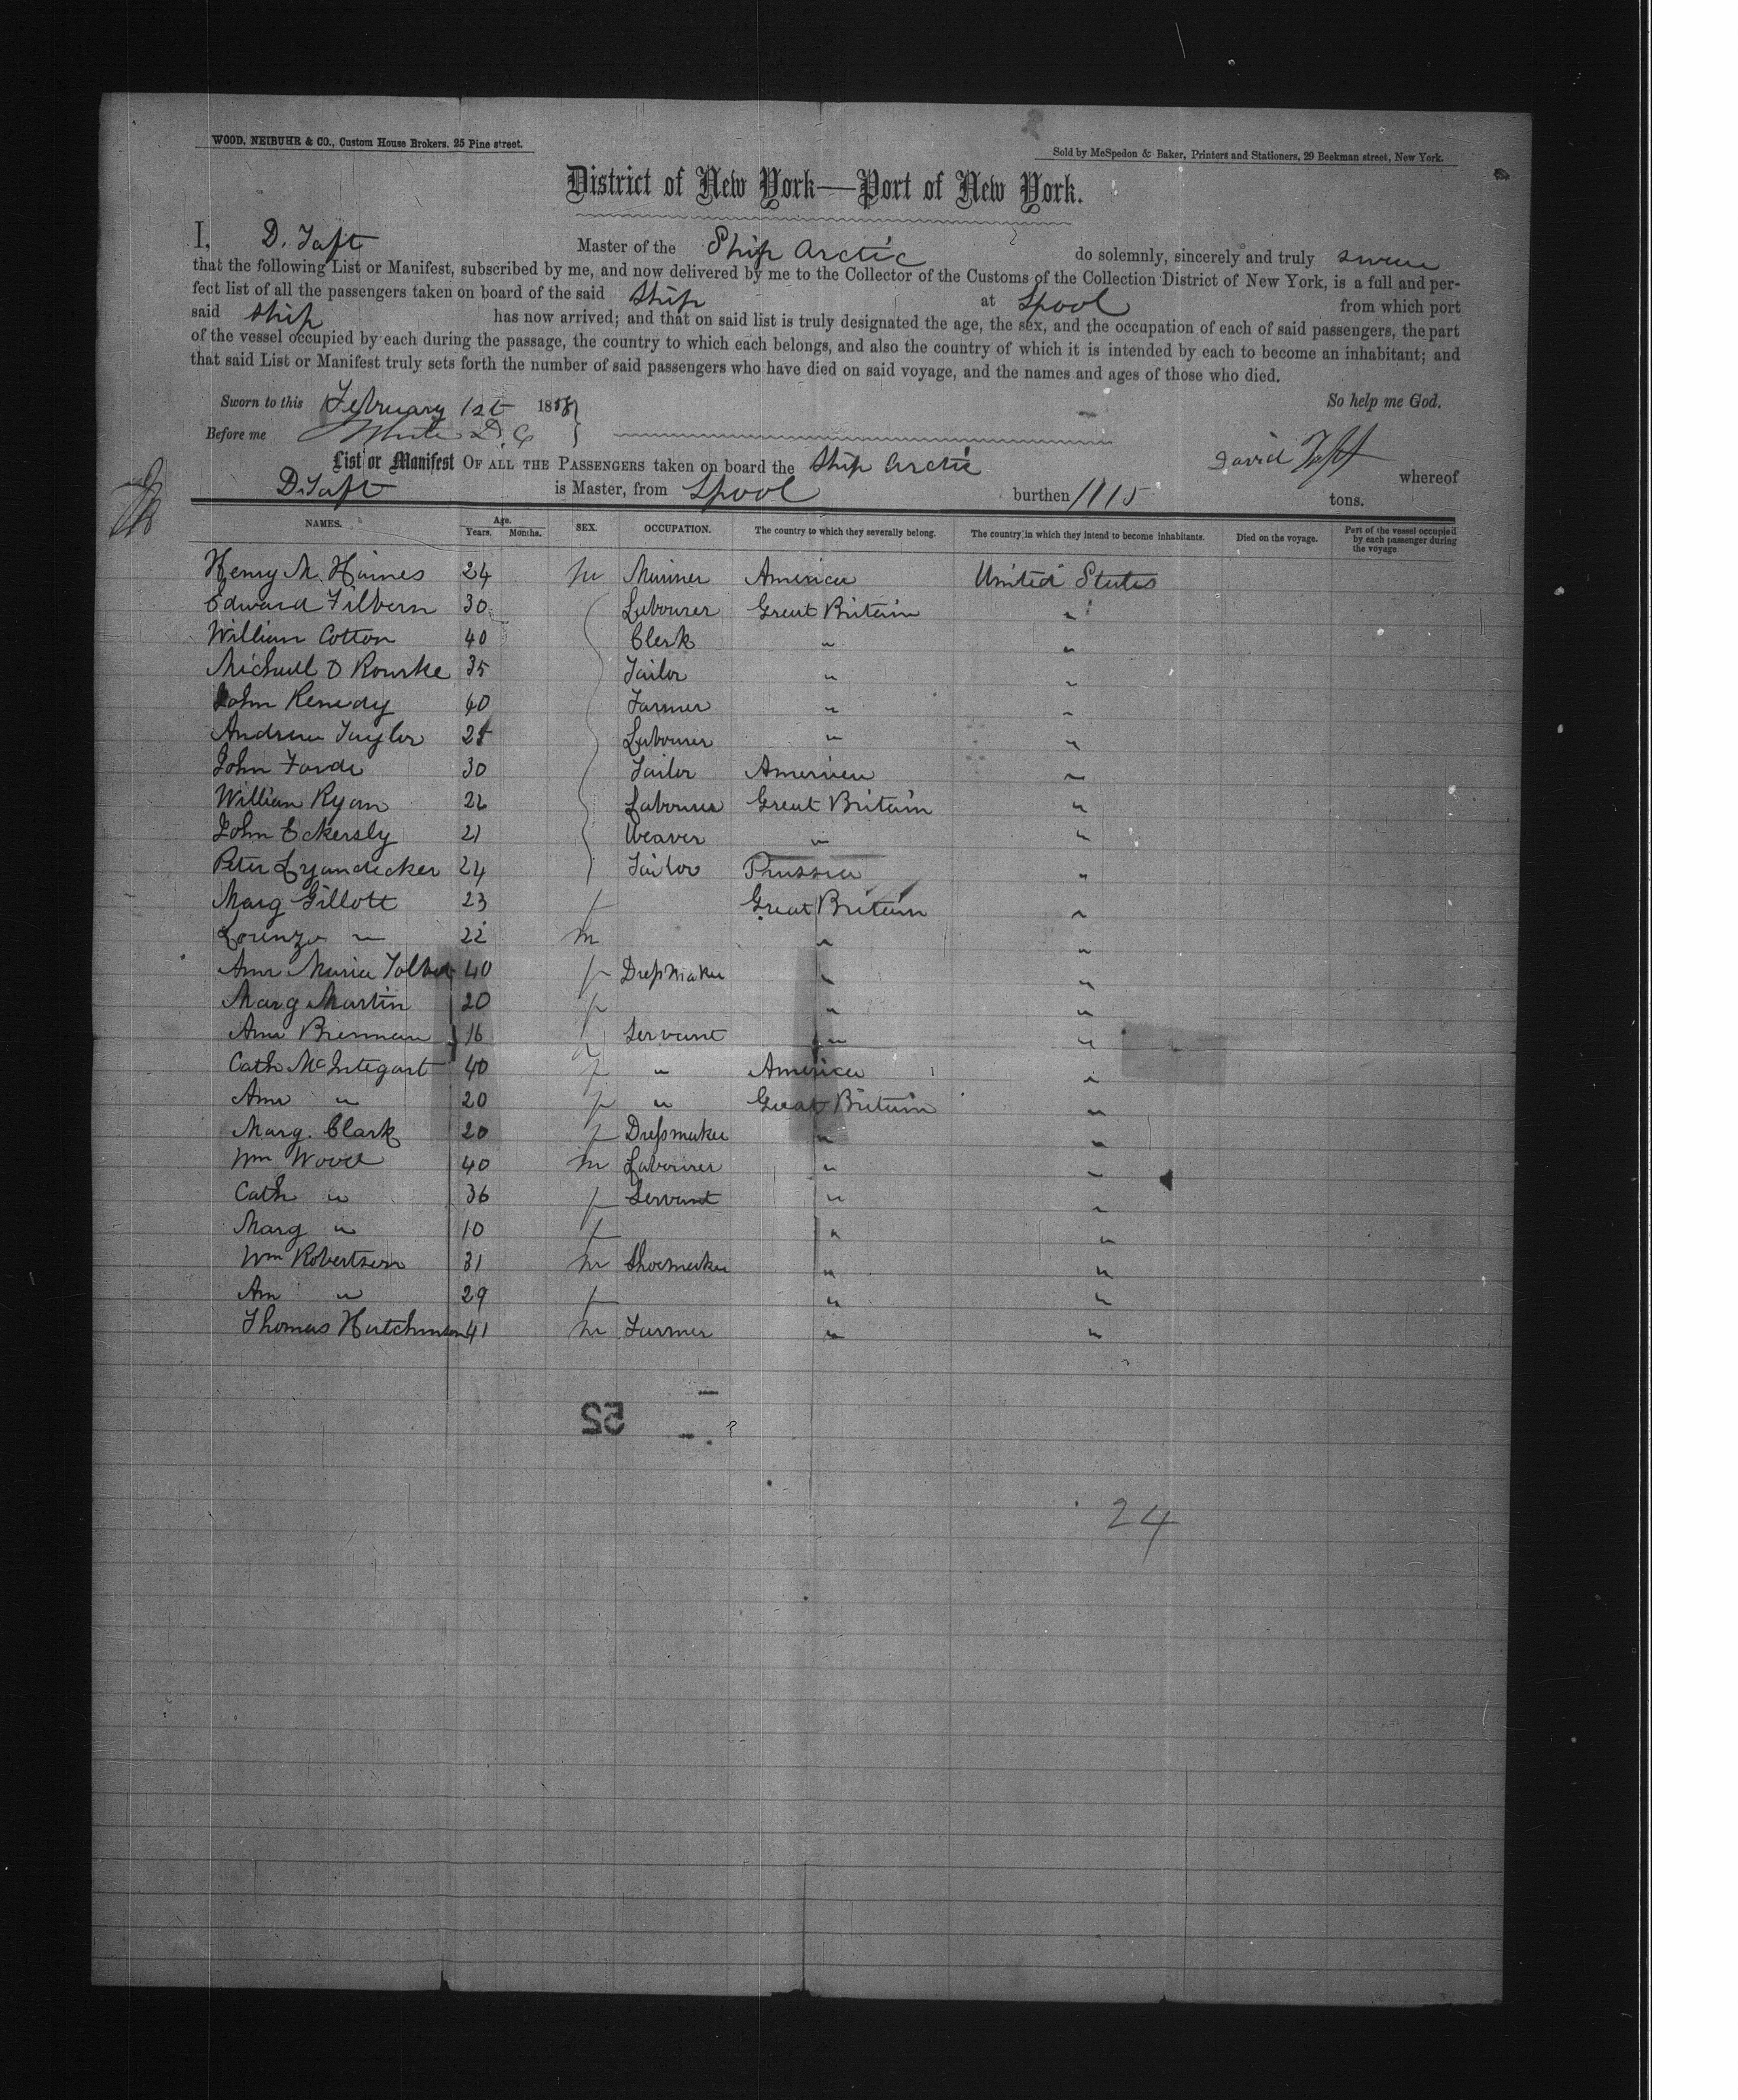 WOOD, NEIBUHR & CO., Custom House Brokers. 25 Pine street.
Sold by McSpedon & Baker, Printers and Stationers, 29 Beekman street, New York.
District of New York—Port of New York.
I, D. Taft Master of the Ship Arctic do solemnly, sincerely and truly swear
that the following List or Manifest, subscribed by me, and now delivered by me to the Collector of the Customs of the Collection District of New York, is a full and per-
fect list of all the passengers taken on board of the said Ship at Lpool from which port
said Ship has now arrived; and that on said list is truly designated the age, the sex, and the occupation of each of said passengers, the part
of the vessel occupied by each during the passage, the country to which each belongs, and also the country of which it is intended by each to become an inhabitant; and
that said List or Manifest truly sets forth the number of said passengers who have died on said voyage, and the names and ages of those who died.
Sworn to this February 1st 1858 So help me God.
Before me White D. C.
David Taft
List or Manifest OF ALL THE PASSENGERS taken on board the Ship Arctic whereof
D. Taft is Master, from Lpool burthen 1115 tons.
NAMES. Age. Years. Months. SEX. OCCUPATION. The country to which they severally belong. The country in which they intend to become inhabitants. Died on the voyage. Part of the vessel occupied by each passenger during the voyage
Henry M. Haines 24 m Mariner America United States
Edward Filbern 30 Labourer Great Britain "
William Cotton 40 Clerk " "
Michael O Rourke 35 Tailor " "
John Kenedy 40 Farmer " "
Andrew Taylor 25 Labourer " "
John Forde 30 Tailor America "
William Ryan 26 Labourer Great Britain "
John Eckersly 21 Weaver " "
Peter Lyandecker 24 Tailor Prussia "
Marg Gillott 23 f Great Britain "
Lorenzo " 22 m " "
Ann Maria 40 f Dressmaker " "
Marg Martin 20 f " "
Ann Brennan 16 f Servant " "
Cath McIntegart 40 f " America "
Ann " 20 f " Great Britain "
Marg. Clark 20 f Dressmaker " "
Wm Wood 40 m Labourer " "
Cath " 36 f Servant " "
Marg " 10 f " "
Wm Robertson 31 m Shoemaker " "
Ann " 29 f " "
Thomas Hutchinson 41 m Farmer " "
52
24